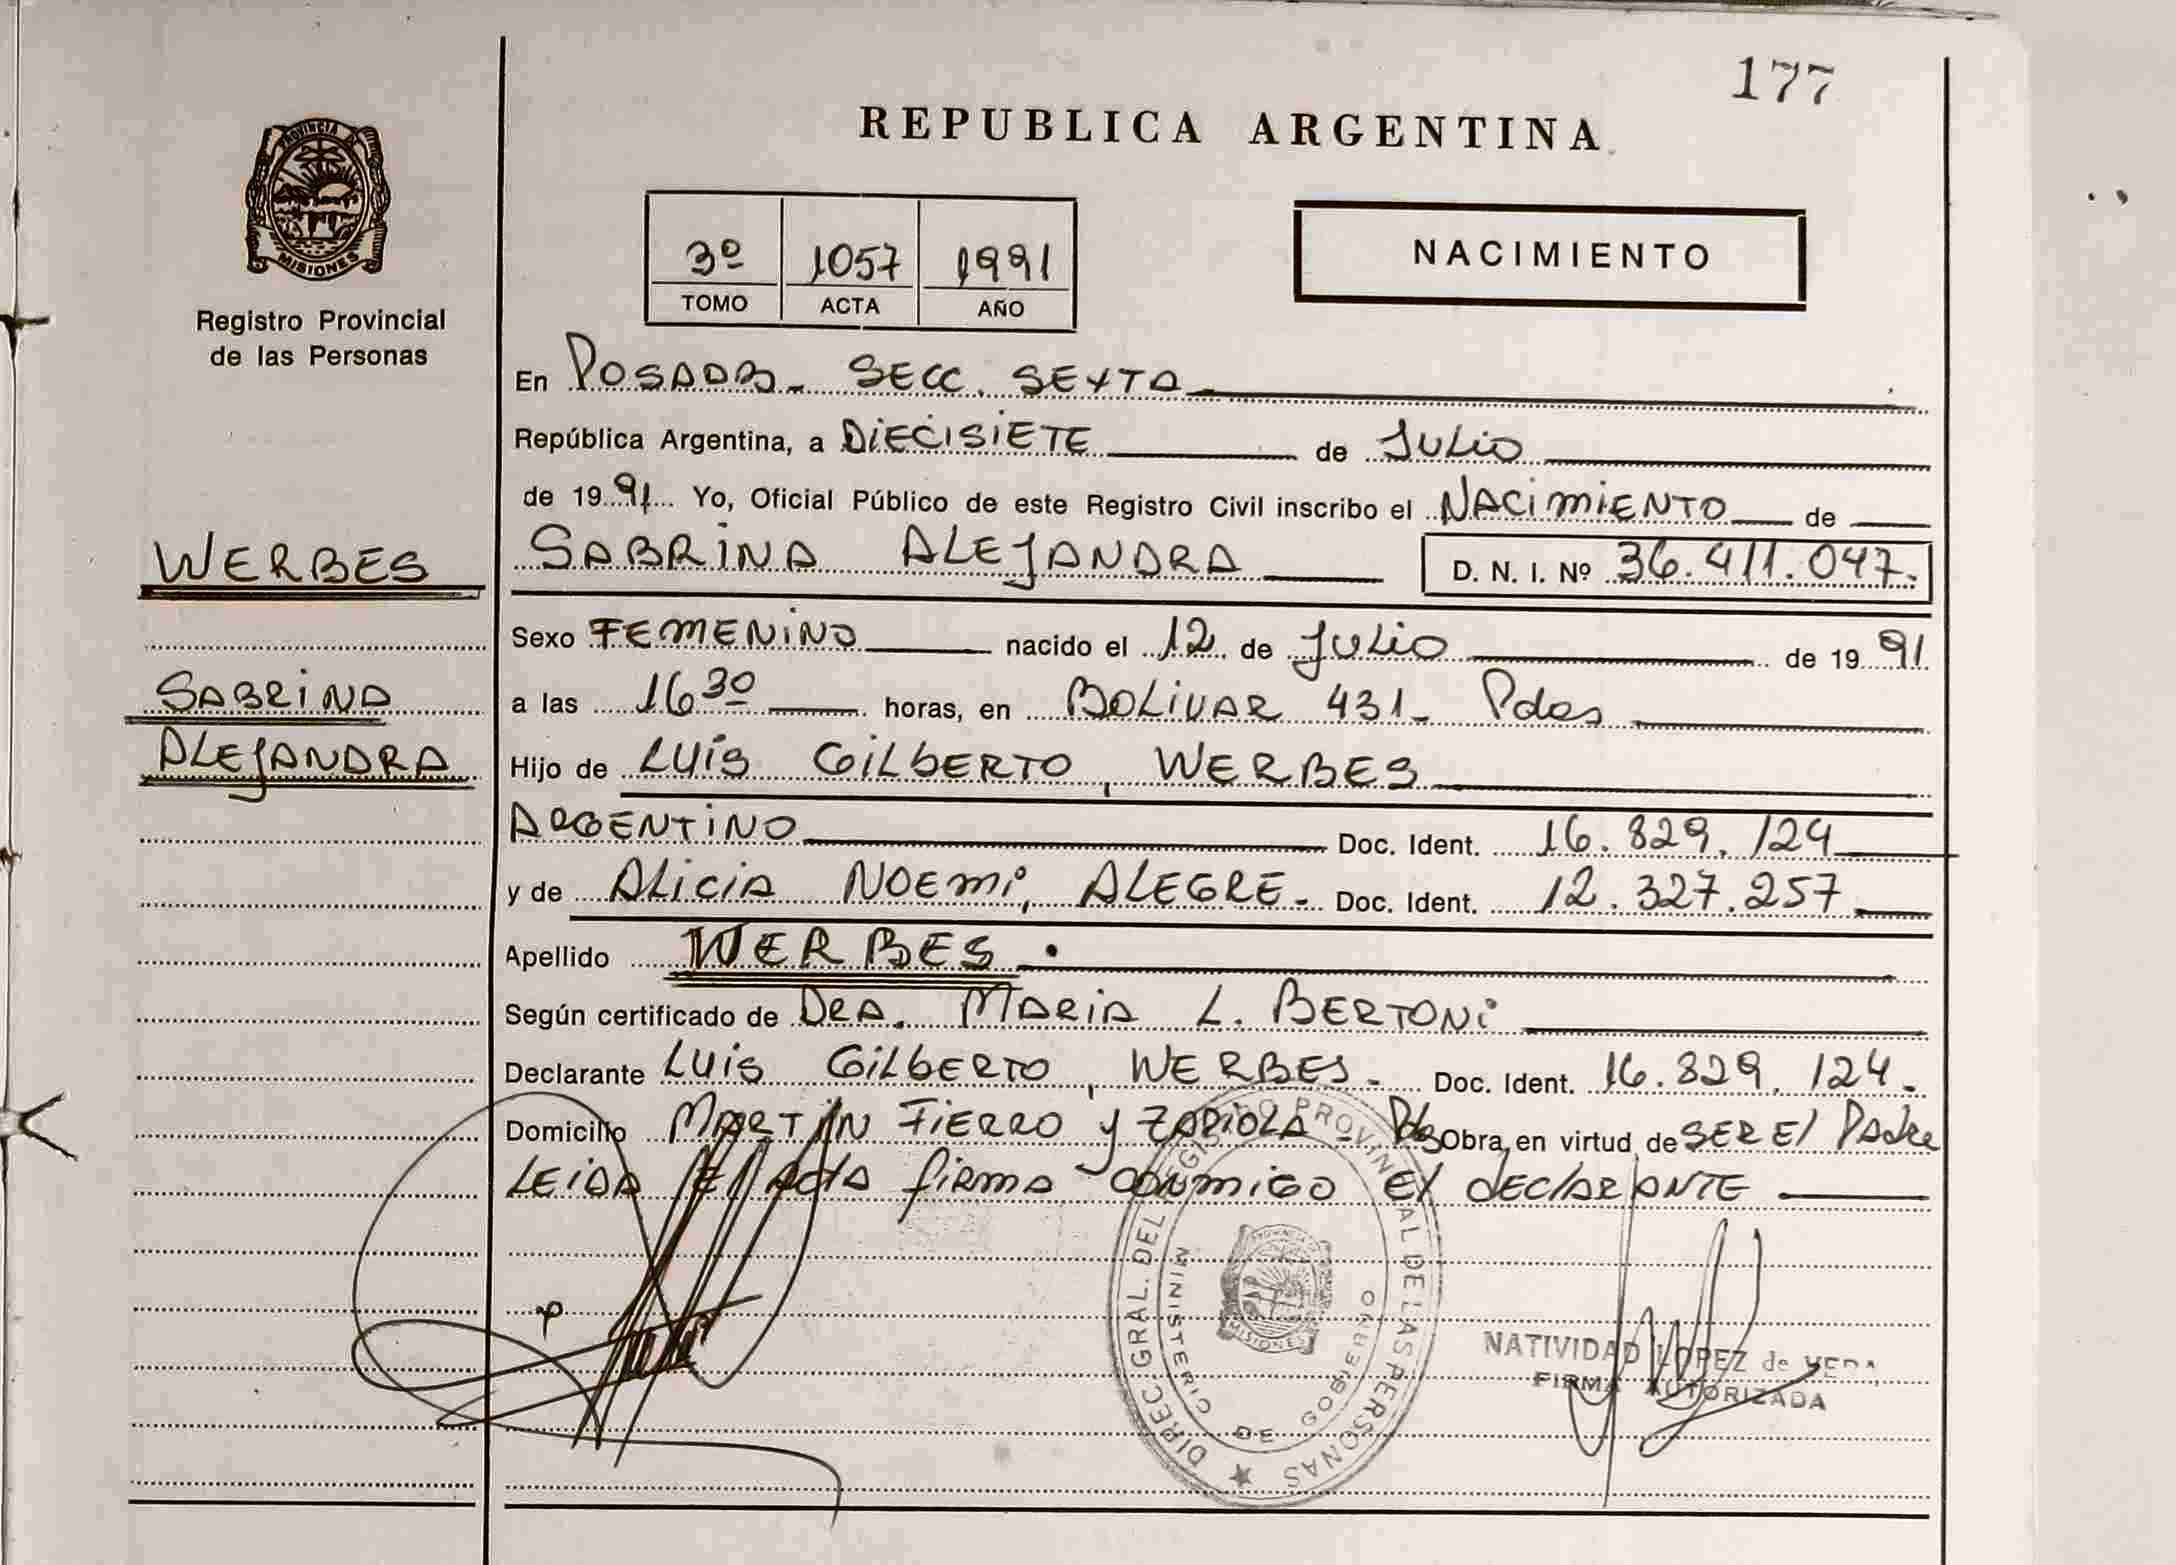 177
REPUBLICA ARGENTINA
PROVINCIA DE
MISIONES
Registro Provincial
de las Personas
3º 1057 1991
TOMO ACTA AÑO
NACIMIENTO
En POSADAS - SECC. SEXTA
República Argentina, a DIECISIETE de JULIO
de 1991 Yo, Oficial Público de este Registro Civil inscribo el NACIMIENTO de
WERBES
SABRINA ALEJANDRA D. N. I. Nº 36.411.047.
Sexo FEMENINO nacido el 12 de JULIO de 1991
SABRINA
a las 16 30 horas, en BOLIVAR 431 - Pdas
ALEJANDRA
Hijo de LUIS GILBERTO, WERBES
ARGENTINO Doc. Ident. 16.829.124
y de ALICIA NOEMI, ALEGRE - Doc. Ident. 12.327.257
Apellido WERBES.
Según certificado de DRA. MARIA L. BERTONI
Declarante LUIS GILBERTO, WERBES - Doc. Ident. 16.829.124.
Domicilio MARTIN FIERRO y ZAPIOLA - Pdas Obra en virtud de SER El Padre
LEIDA El Acta firma conmigo El declarante
DIREC GRAL. DEL REGISTRO PROVINCIAL DE LAS PERSONAS
MINISTERIO DE GOBIERNO
MISIONES
NATIVIDAD LOPEZ de VERA
FIRMA AUTORIZADA